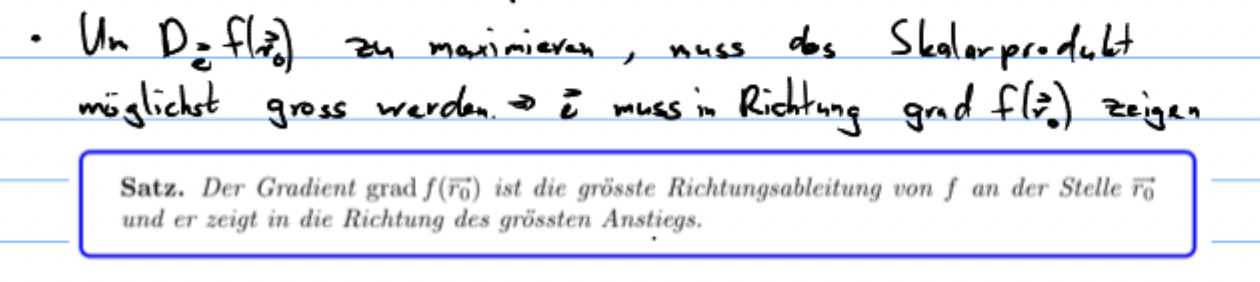 • Um D_e⃗ f(r⃗₀) zu maximieren, muss das Skalarprodukt
möglichst gross werden. ⇒ e⃗ muss in Richtung grad f(r⃗₀) zeigen
Satz. Der Gradient grad f(r⃗₀) ist die grösste Richtungsableitung von f an der Stelle r⃗₀
und er zeigt in die Richtung des grössten Anstiegs.